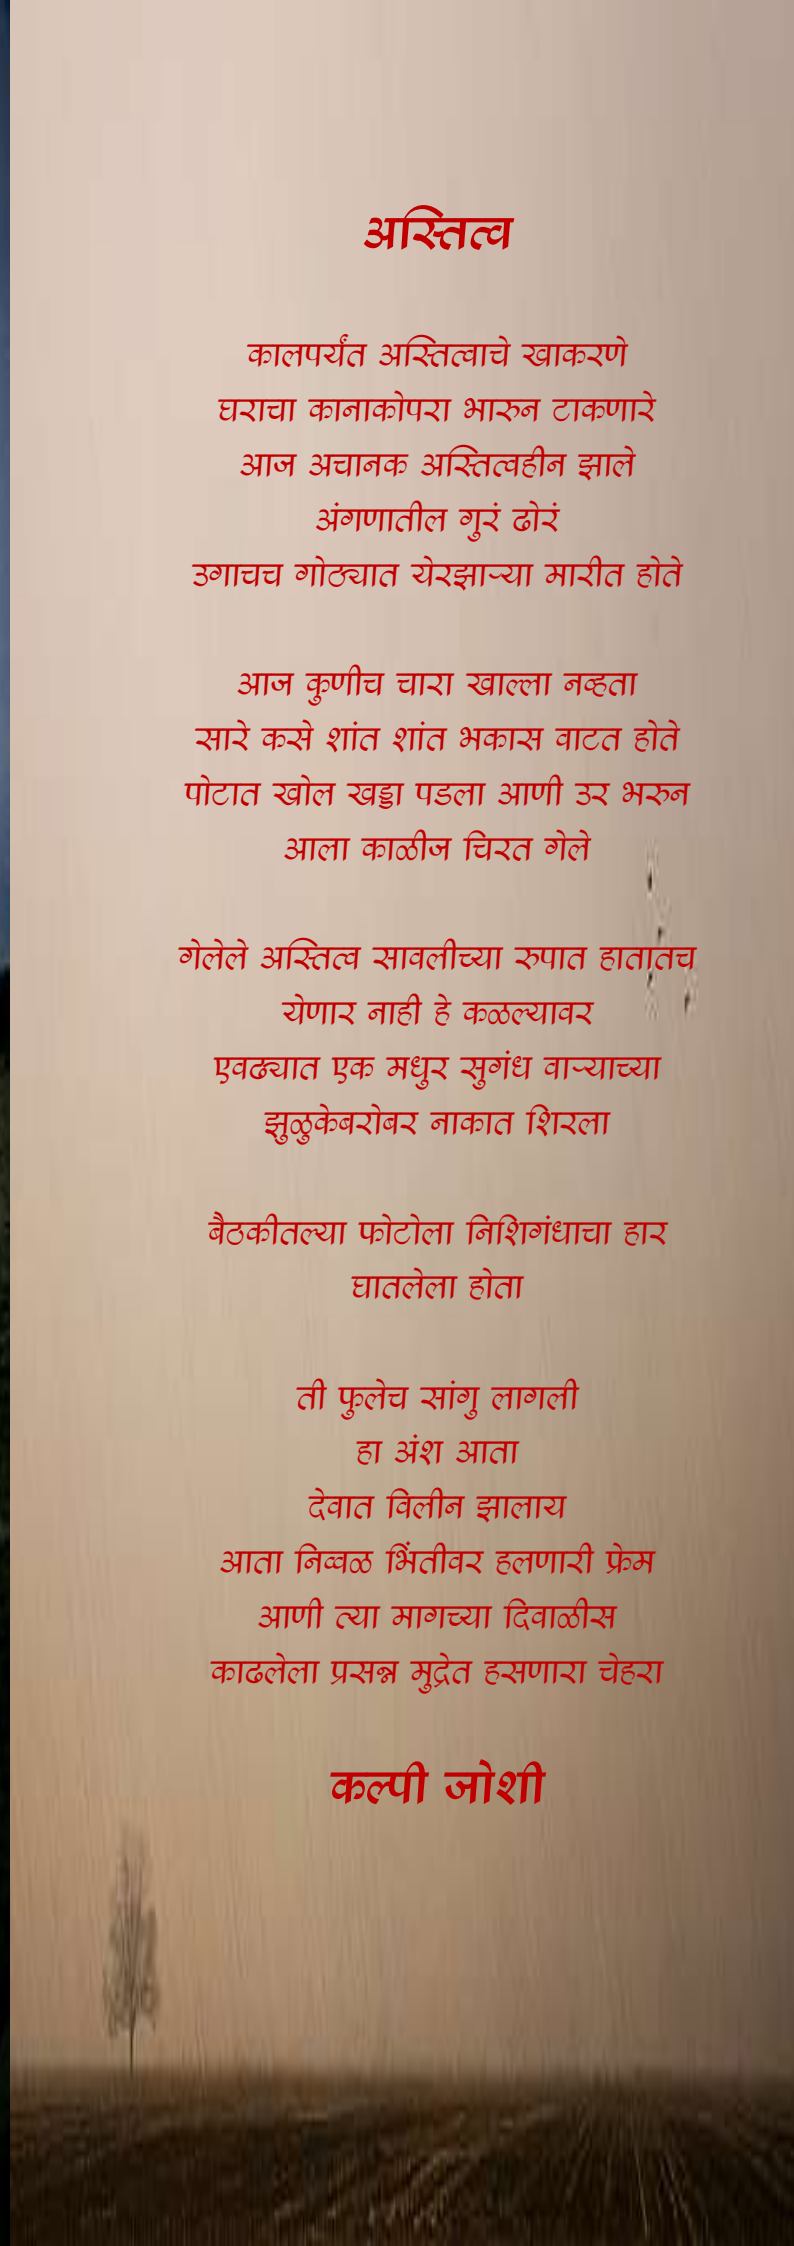 अस्तित्व
कालपर्यंत अस्तित्वाचे खाकरणे
घराचा कानाकोपरा भारुन टाकणारे
आज अचानक अस्तित्वहीन झाले
अंगणातील गुरं ढोरं
उगाचच गोठ्यात येरझाऱ्या मारीत होते
आज कुणीच चारा खाल्ला नव्हता
सारे कसे शांत शांत भकास वाटत होते
पोटात खोल खड्डा पडला आणी उर भरुन
आला काळीज चिरत गेले
गेलेले अस्तित्व सावलीच्या रुपात हातातच
येणार नाही हे कळल्यावर
एवढ्यात एक मधुर सुगंध वाऱ्याच्या
झुळुकेबरोबर नाकात शिरला
बैठकीतल्या फोटोला निशिगंधाचा हार
घातलेला होता
ती फुलेच सांगु लागली
हा अंश आता
देवात विलीन झालाय
आता निव्वळ भिंतीवर हलणारी फ्रेम
आणी त्या मागच्या दिवाळीस
काढलेला प्रसन्न मुद्रेत हसणारा चेहरा
कल्पी जोशी